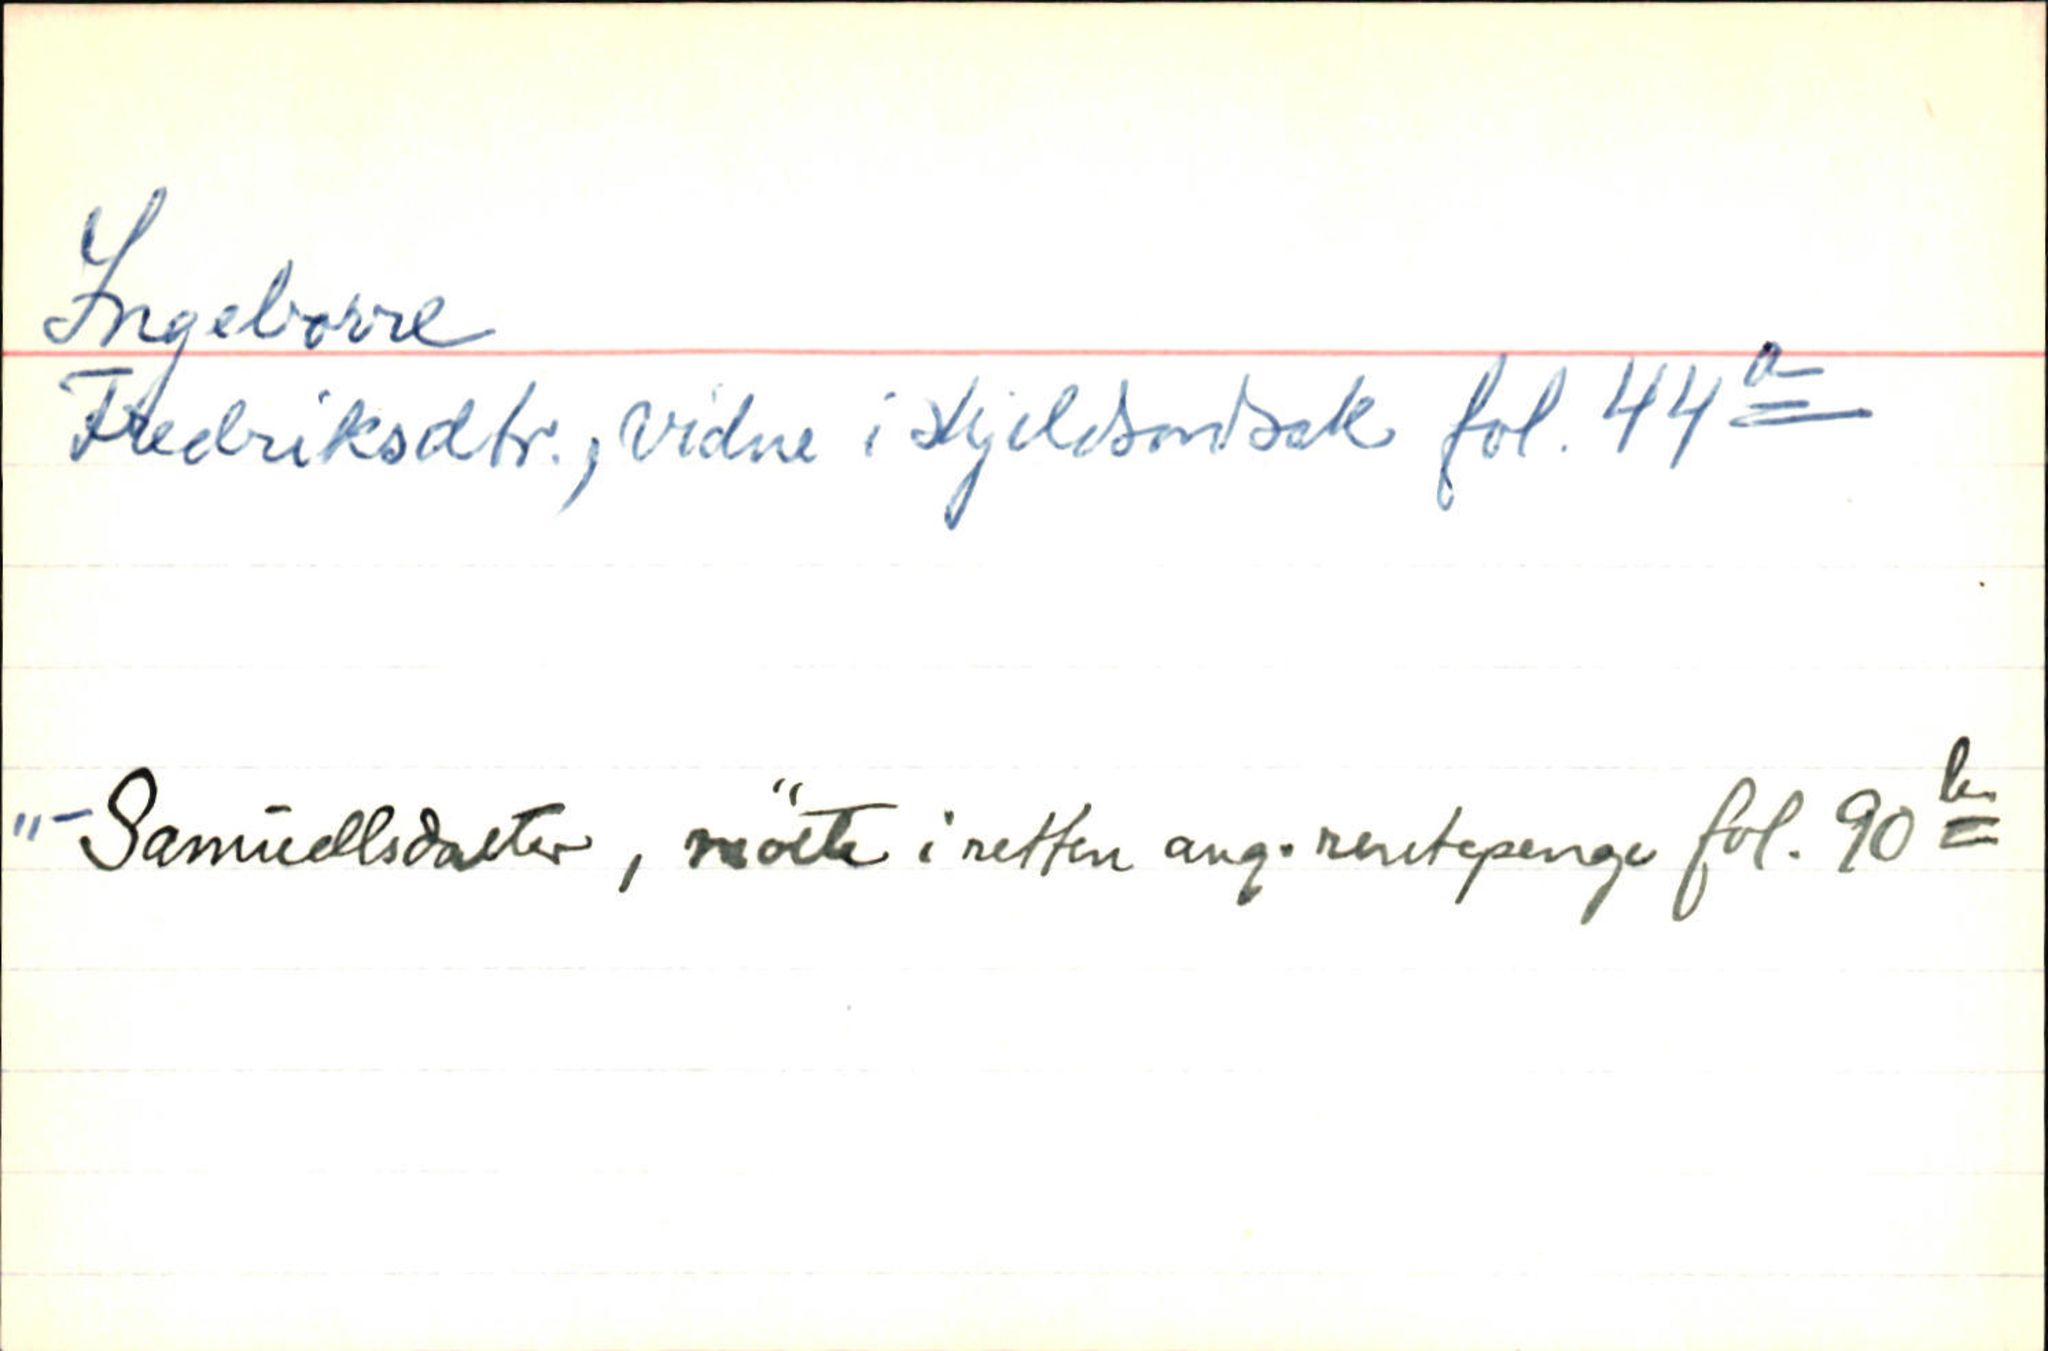 Ingeborre
Fredriksdtr., vidne i skjeldsordsak fol. 44 a
"- Samuellsdatter, mötte i retten ang. rentepenge fol. 90 b